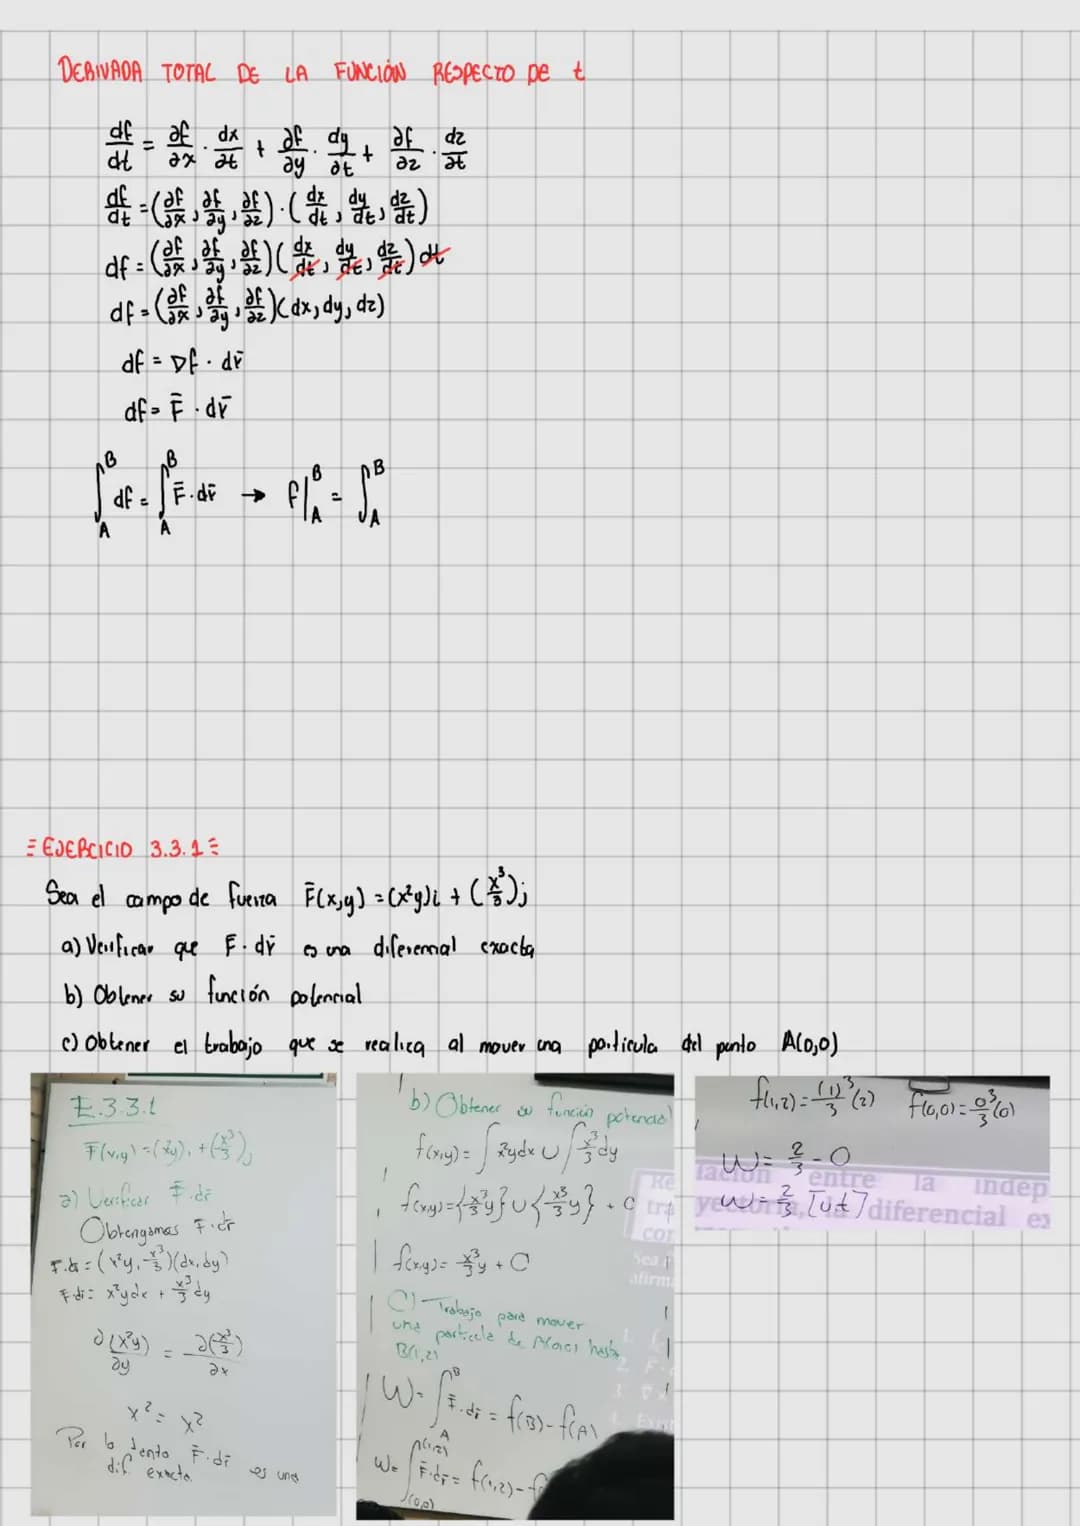 DERIVADA TOTAL DE LA FUNCIÓN RESPECTO DE t
df/dt = ∂f/∂x · dx/∂t + ∂f/∂y · dy/∂t + ∂f/∂z · dz/∂t
df/dt = (∂f/∂x, ∂f/∂y, ∂f/∂z) · (dx/dt, dy/dt, dz/dt)
df = (∂f/∂x, ∂f/∂y, ∂f/∂z)(dx/dt, dy/dt, dz/dt) dt
df = (∂f/∂x, ∂f/∂y, ∂f/∂z)(dx, dy, dz)
df = ∇f · dr̄
df = F̄ · dr̄
∫_A^B df = ∫_A^B F̄ · dr̄ → f|_A^B = ∫_A^B
= EJERCICIO 3.3.1 =
Sea el campo de fuerza F̄(x,y) = (x²y)i + (x³/3)j
a) Verificar que F̄ · dr̄ es una diferencial exacta
b) Obtener su función potencial
c) Obtener el trabajo que se realiza al mover una partícula del punto A(0,0)
E.3.3.1
F̄(x,y) = (x²y)i + (x³/3)j
a) Verificar F̄·dr̄
Obtengamos F̄·dr̄
F̄·dr̄ = (x²y, x³/3)(dx, dy)
F̄·dr̄ = x²ydx + x³/3 dy
∂(x²y)/∂y = ∂(x³/3)/∂x
x² = x²
Por lo tanto F̄·dr̄ es una
dif. exacta.
b) Obtener su función potencial
f(x,y) = ∫x²ydx ∪ ∫x³/3 dy
f(x,y) = {x³/3 y} ∪ {x³/3 y} + C
f(x,y) = x³/3 y + C
C) Trabajo para mover
una partícula de A(0,0) hasta
B(1,2)
W = ∫_A^B F̄·dr̄ = f(B) - f(A)
W = ∫_(0,0)^(1,2) F̄·dr̄ = f(1,2) - f
f(1,2) = (1)³/3 (2) f(0,0) = 0³/3 (0)
W = 2/3 - 0
W = 2/3 [u.t]
entre la indep
diferencial ex